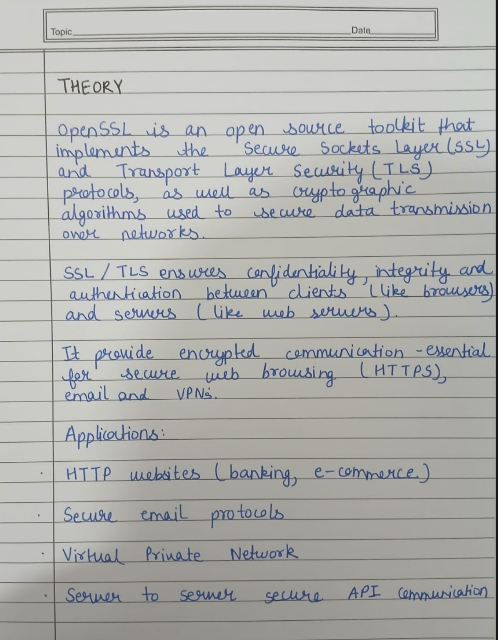 Topic Date
THEORY
OpenSSL is an open source toolkit that
implements the Secure Sockets Layer (SSL)
and Transport Layer Security (TLS)
protocols, as well as cryptographic
algorithms used to secure data transmission
over networks.
SSL / TLS ensures confidentiality, integrity and
authentication between clients (like browsers)
and servers (like web servers).
It provide encrypted communication - essential
for secure web browsing (HTTPS),
email and VPNs.
Applications:
· HTTP websites (banking, e-commerce)
· Secure email protocols
· Virtual Private Network
· Server to server secure API communication